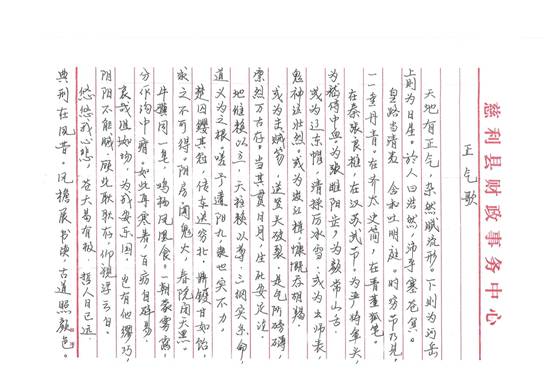 慈利县财政事务中心
正气歌
天地有正气，杂然赋流形。下则为河岳
上则为日星。於人曰浩然，沛乎塞苍冥。
皇路当清夷，含和吐明庭。时穷节乃见，
一一垂丹青。在齐太史简，在晋董狐笔。
在秦张良椎，在汉苏武节。为严将军头，
为嵇侍中血。为张睢阳齿，为颜常山舌。
或为辽东帽，清操厉冰雪。或为出师表，
鬼神泣壮烈。或为渡江楫，慷慨吞胡羯。
或为击贼笏，逆竖头破裂。是气所磅礴，
凛然万古存。当其贯日月，生死安足论。
地维赖以立，天柱赖以尊。三纲实系命，
道义为之根。嗟予遘阳九，隶也实不力。
楚囚缨其冠，传车送穷北。鼎镬甘如饴，
求之不可得。阴房阒鬼火，春院闭天黑。
牛骥同一皂，鸡栖凤凰食。一朝蒙雾露，
分作沟中瘠。如此再寒暑，百疠自辟易。
哀哉沮洳场，为我安乐国。岂有他缪巧，
阴阳不能贼。顾此耿耿存，仰视浮云白。
悠悠我心悲，苍天曷有极。哲人日已远，
典刑在夙昔。风檐展书读，古道照颜色。